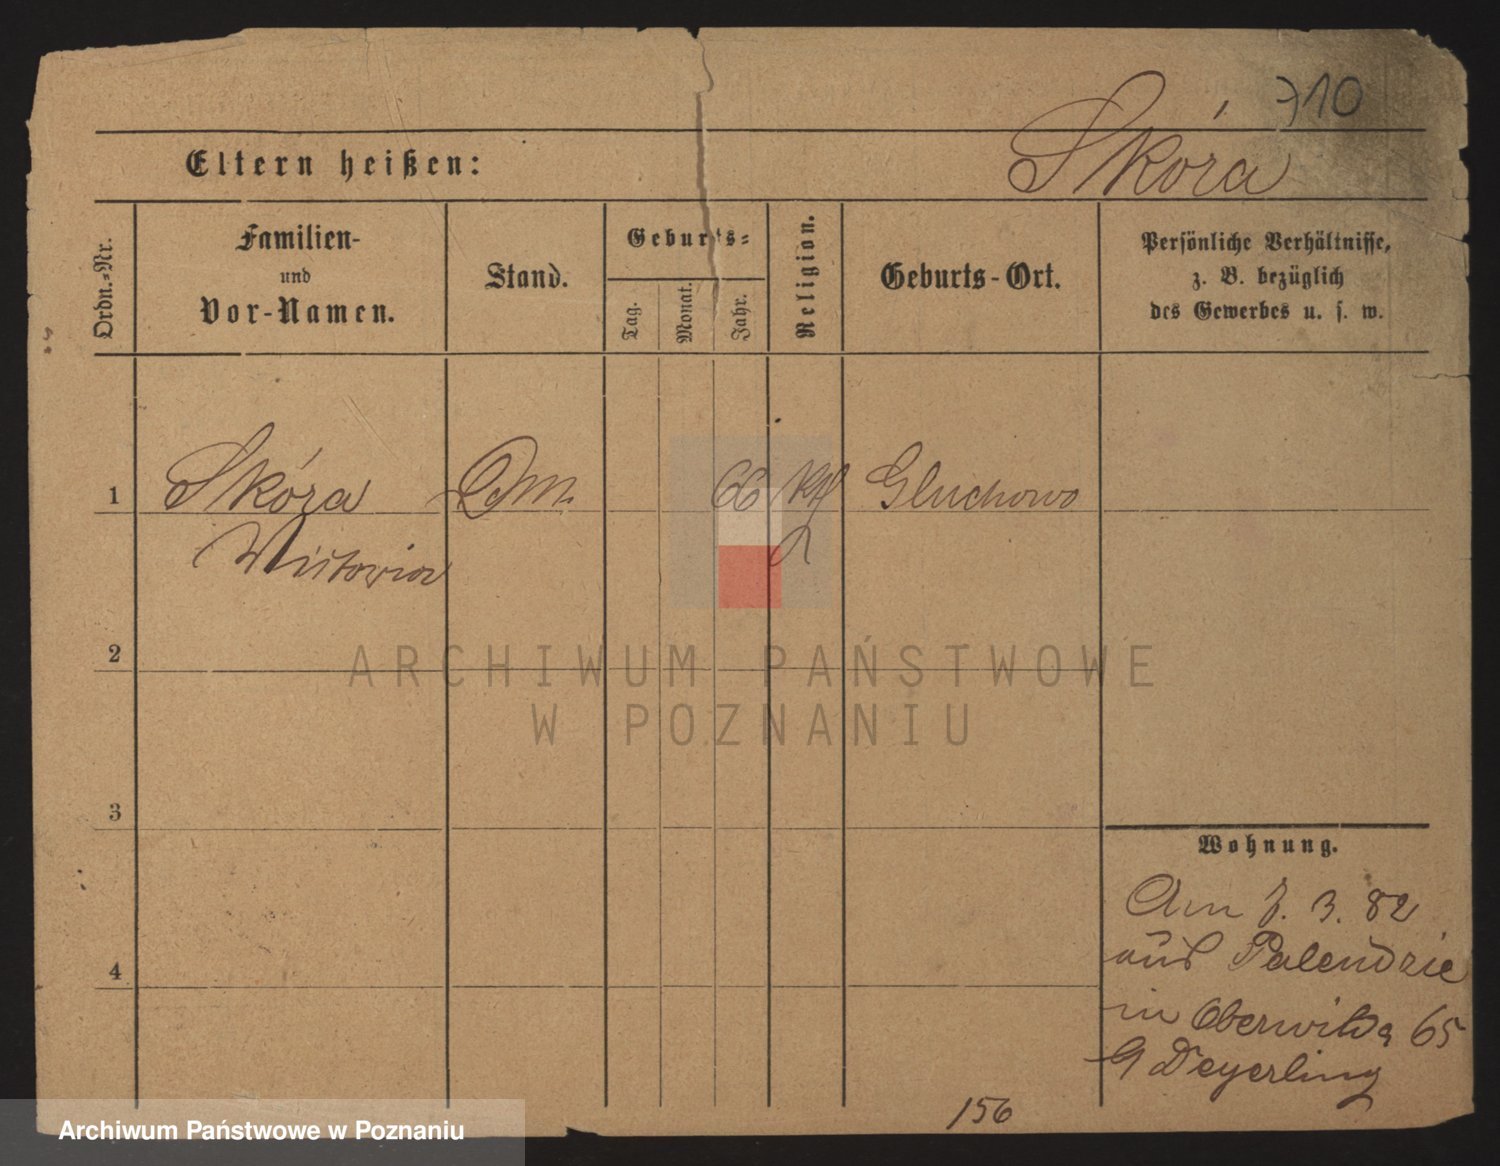 710
Eltern heißen:
Skóra
Ordn.-Nr.
Familien-
und
Vor-Namen.
Stand.
Geburts-
Tag.
Monat.
Jahr.
Religion.
Geburts-Ort.
Persönliche Verhältnisse,
z. B. bezüglich
des Gewerbes u. s. w.
1
Skóra
66
Kth
Gluchowo
Wictoria
2
ARCHIWUM PAŃSTWOWE
W POZNANIU
3
Wohnung.
4
Am 7. 3. 82
aus Palendzie
in Oberwilda 65
Deyerling
156
Archiwum Państwowe w Poznaniu